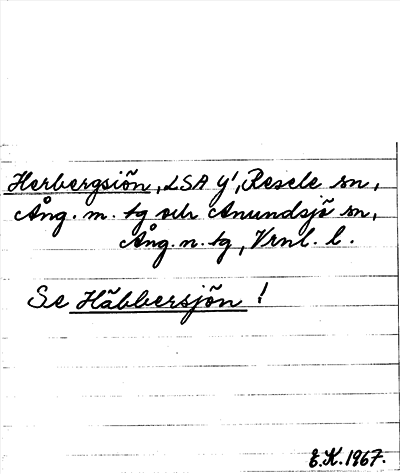 Herbergsiön, LSA Y¹, Resele sn,
Ång. m. tg och Anundsjö sn,
Ång. n. tg, Vrnl. l.
Se Häbbersjön!
E.K. 1967.